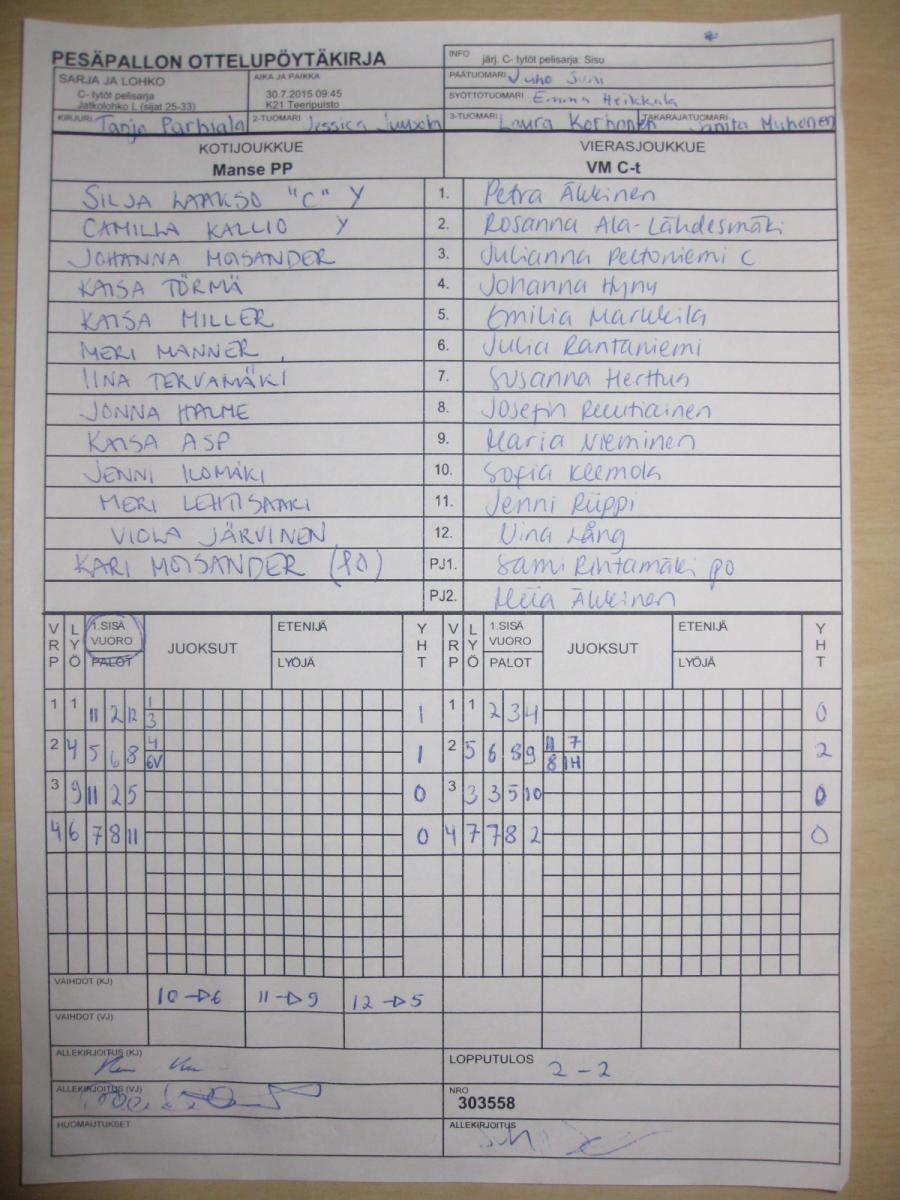 PESÄPALLON OTTELUPÖYTÄKIRJA
INFO järj. C- tytöt pelisarja: Sisu
SARJA JA LOHKO
C- tytöt pelisarja
Jatkolohko L (sijat 25-33)
AIKA JA PAIKKA
30.7.2015 09:45
K21 Teeripuisto
PÄÄTUOMARI Juho
SYÖTTÖTUOMARI Emma Heikkala
KIRJURI Tanja Parhiala 2-TUOMARI Jessica 3-TUOMARI Laura Korhonen TAKARAJATUOMARI Janita Muhonen
KOTIJOUKKUE VIERASJOUKKUE
Manse PP VM C-t
SILJA LAAKSO "C" Y 1. Petra Äkkinen
CAMILLA KALLIO Y 2. Rosanna Ala-Lähdesmäki
JOHANNA MOISANDER 3. Julianna Peltoniemi C
KAISA TÖRMÄ 4. Johanna Hyny
KAISA MILLER 5. Emilia Markkila
MERI MANNER 6. Julia Rantaniemi
IINA TERVAMÄKI 7. Susanna Herttua
JONNA HALME 8. Josefin Ruutiainen
KAISA ASP 9. Maria Nieminen
JENNI ILOMÄKI 10. Sofia Kleemola
MERI LEHTISAARI 11. Jenni Riippi
VIOLA JÄRVINEN 12. Nina Lång
KARI MOISANDER (PO) PJ1. Sami Rintamäki po
PJ2. Miia Äkkinen
VRP LYÖ 1.SISÄ VUORO PALOT JUOKSUT ETENIJÄ LYÖJÄ YHT VRP LYÖ 1.SISÄ VUORO PALOT JUOKSUT ETENIJÄ LYÖJÄ YHT
1 1 11 2 12 1 3 1 1 1 2 3 4 0
2 4 5 6 8 4 6V 1 2 5 6 8 9 11 7 8 1H 2
3 9 11 2 5 0 3 3 3 5 10 0
4 6 7 8 11 0 4 7 7 8 2 0
VAIHDOT (KJ) 10→6 11→9 12→5
VAIHDOT (VJ)
ALLEKIRJOITUS (KJ) LOPPUTULOS 2-2
ALLEKIRJOITUS (VJ) NRO
303558
HUOMAUTUKSET ALLEKIRJOITUS